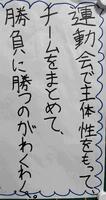 運動会で主体性をもって
チームをまとめて、
勝負に勝つのがわくわく。